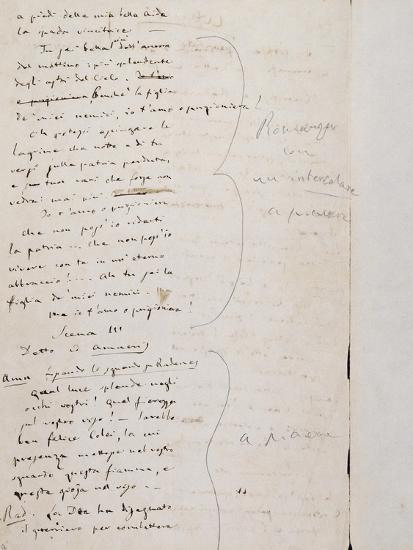 a piedi della mia bella Aida
la spada vincitrice —
Tu sei bella! dell'aurora
del mattino i più splendente
degli astri del Cielo.
e prigioniera, benchè la figlia
de' miei nemici, io t'amo o prigioniera!
Oh potessi asciugare le
lagrime che notte e dì tu
versi sulla patria perduta,
e tuoi cari che forse non
vedrai mai più!
Io t'amo o prigioniera
che non poss'io ridarti
la patria ... che non poss'io
vivere con te in un'eterno
abbraccio! ... Ah tu sei la
figlia de' miei nemici.
ma io t'amo o prigioniera!
Scena III
Detto e Amneris
Amn. sguardo Radames
Qual luce splende negli
occhi vostri! Qual
sul vostro viso! — Sarebbe
ben felice Colei, la cui
presenza mettesse nel vostro
sguardo questa fiamma, e
questa gioja nel viso —
Rad. Dea ha disegnato
il guerriero per combattere
Romanza
con
un'intercalare
a piacere
a piacere